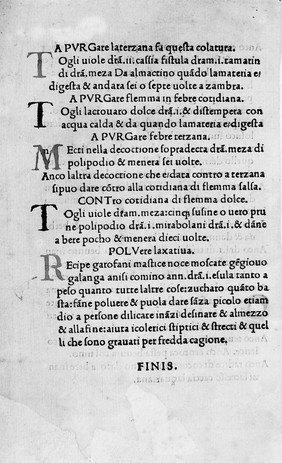 A PVRGare laterzana fa questa colatura.
TOgli uiole drã.ii.cassia fistula dram.i.tamarin
di drã.meza Da almactino quãdo lamateria e/
digesta & andara sei o septe uolte a zambra.
A PVRGare flemma in febre cotidiana.
TOgli lactouaro dolce drã.i.& distempera con
acqua calda & da quando lamateria e/digesta
A PVRGare febre terzana.
MEcti nella decoctione sopradecta drã.meza di
polipodio & menera sei uolte.
Anco laltra decoctione che e/data contro a terzana
sipuo dare cõtro alla cotidiana di flemma salsa.
CONTro cotidiana di flemma dolce.
TOgli uiole dram.meza:cinq3 susine o uero pru
ne polipodio drã.i.mirabolani drã.i.& dãne
a bere pocho & menera dieci uolte.
POLVere laxatiua.
REcipe garofani mastice noce moscate gẽgiouo
galanga anisi comino ann.drã.i.esula tanto a
peso quanto tutte laltre cose:zucharo quãto ba
sta:fãne poluere & puola dare sãza picolo etiam
dio a persone dilicate inãzi desinare & almezo
& alla fine:aiuta icolerici stiptici & strecti & quel
li che sono grauati per fredda cagione.
FINIS.